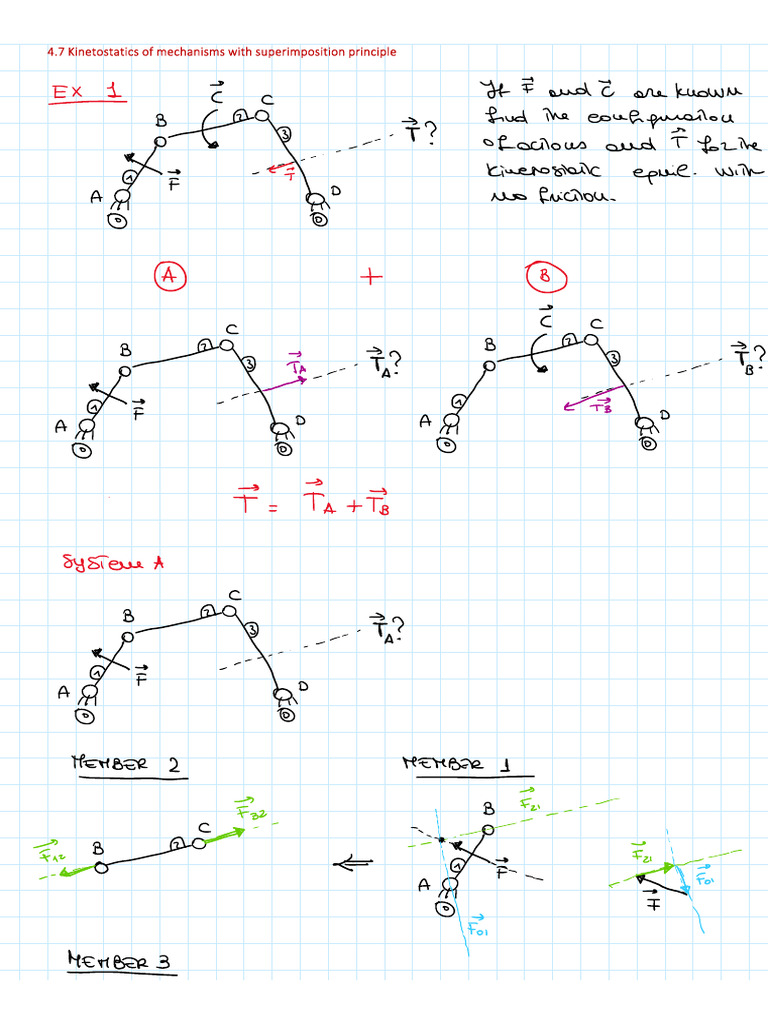 4.7 Kinetostatics of mechanisms with superimposition principle
EX 1
If F⃗ and C⃗ are known
find the configuration
of actions and T⃗ for the
kinetostatic equil. with
no friction.
C⃗
2
C
B
3
T⃗?
1
F⃗
T⃗
A
D
0
0
A + B
C⃗
2
C
B
3
T⃗A
T⃗A?
1
F⃗
A
D
0
0
2
C
B
3
T⃗B?
1
T⃗B
A
D
0
0
T⃗ = T⃗A + T⃗B
System A
C
2
B
3
T⃗A?
1
F⃗
A
D
0
0
MEMBER 2
MEMBER 1
F⃗32
C
2
B
F⃗12
⇐
B
F⃗21
1
F⃗
A
0
F⃗01
F⃗21
F⃗01
F⃗
MEMBER 3